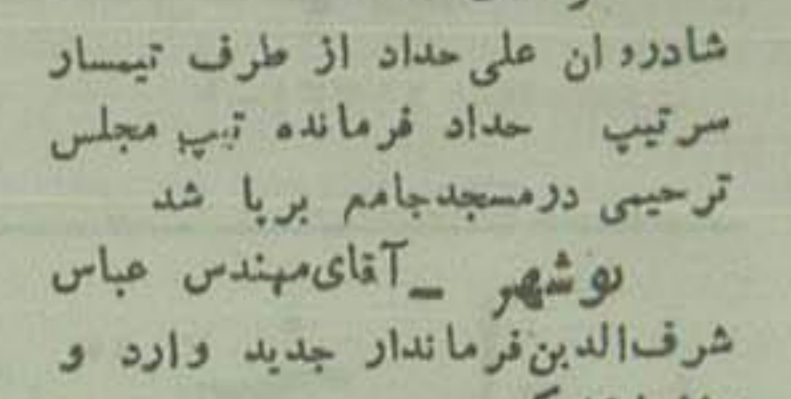 شادروان علی حداد از طرف تیمسار
سرتیپ حداد فرمانده تیپ مجلس
ترحیمی درمسجدجامع برپا شد
بوشهر _ آقای‌مهندس عباس
شرف‌الدین‌فرماندار جدید وارد و